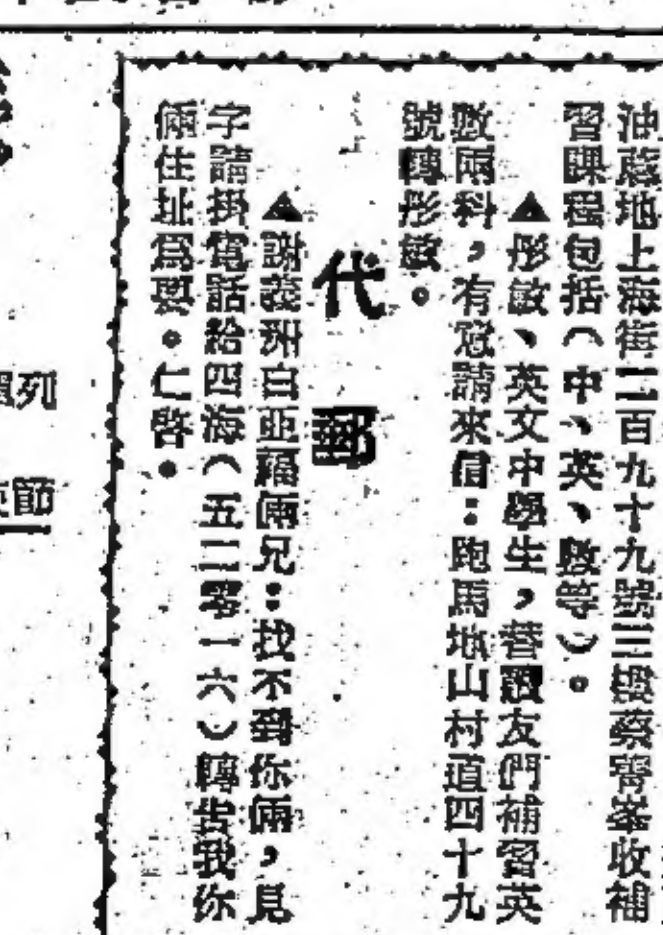 油蔴地上海街二百九十九號三樓蔡寄峯收補
習課程包括(中、英、數等)。
▲彤敏、英文中學生,替讀友們補習英
數兩科,有意請來信:跑馬地山村道四十九
號轉彤敏。
代郵
▲謝義洲白亞福倆兄:找不到你倆,見
字請掛電話給四海(五二零一六)轉告我你
倆住址爲要。仁啓。
列
節